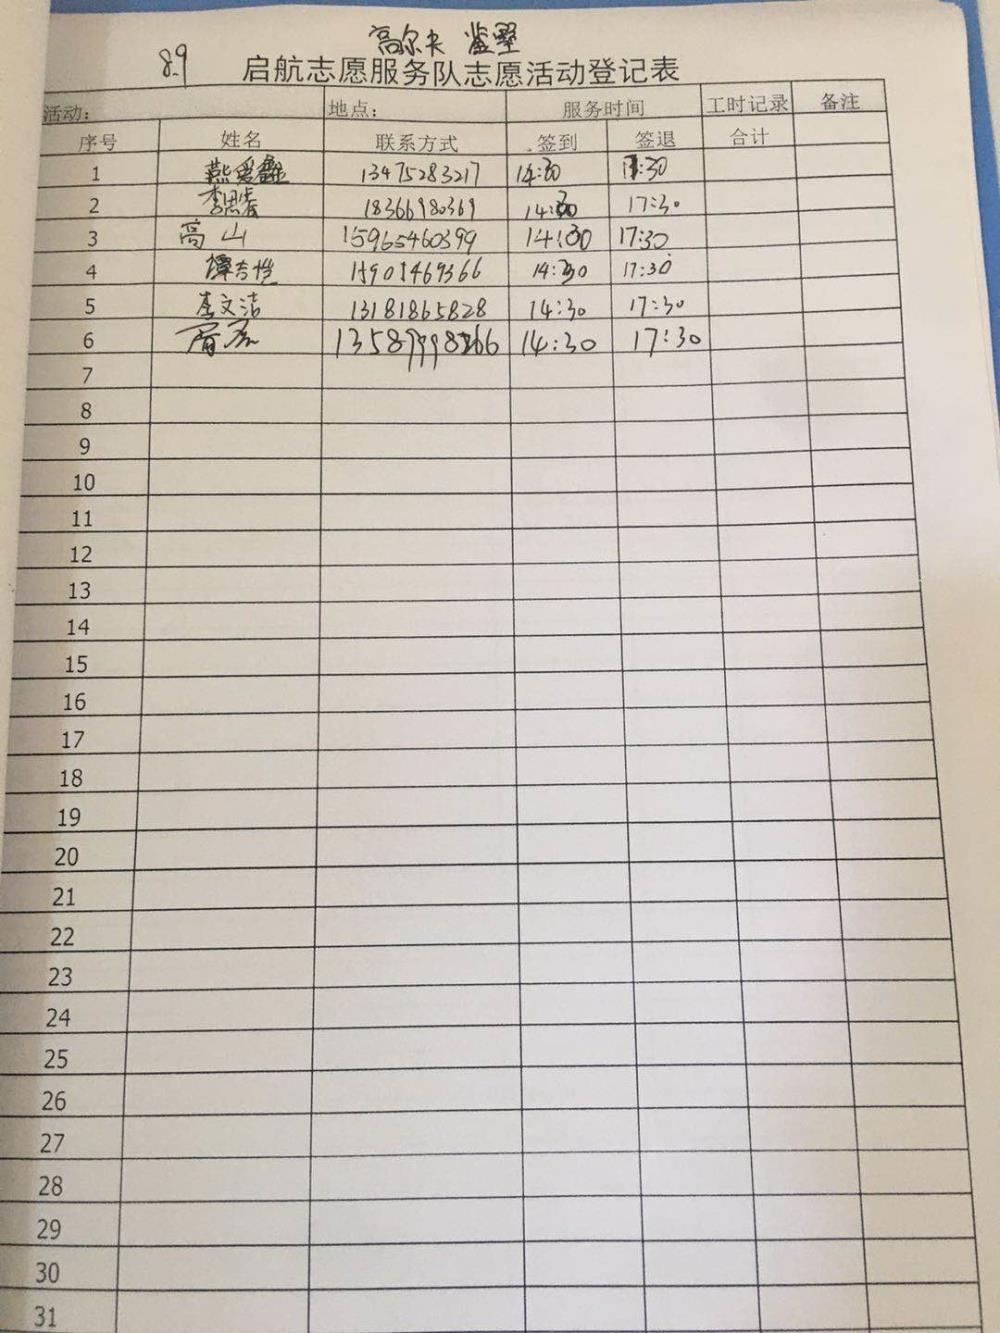 高尔夫
8.9
启航志愿服务队志愿活动登记表
活动： 地点： 服务时间 工时记录 备注
序号 姓名 联系方式 签到 签退 合计
1 燕爱鑫 13475283217 14:30 17:30
2 李思睿 18366980369 14:30 17:30
3 高山 15965460399 14:30 17:30
4 谭吉恺 15901469366 14:30 17:30
5 李文洁 13181865828 14:30 17:30
6 14:30 17:30
7
8
9
10
11
12
13
14
15
16
17
18
19
20
21
22
23
24
25
26
27
28
29
30
31